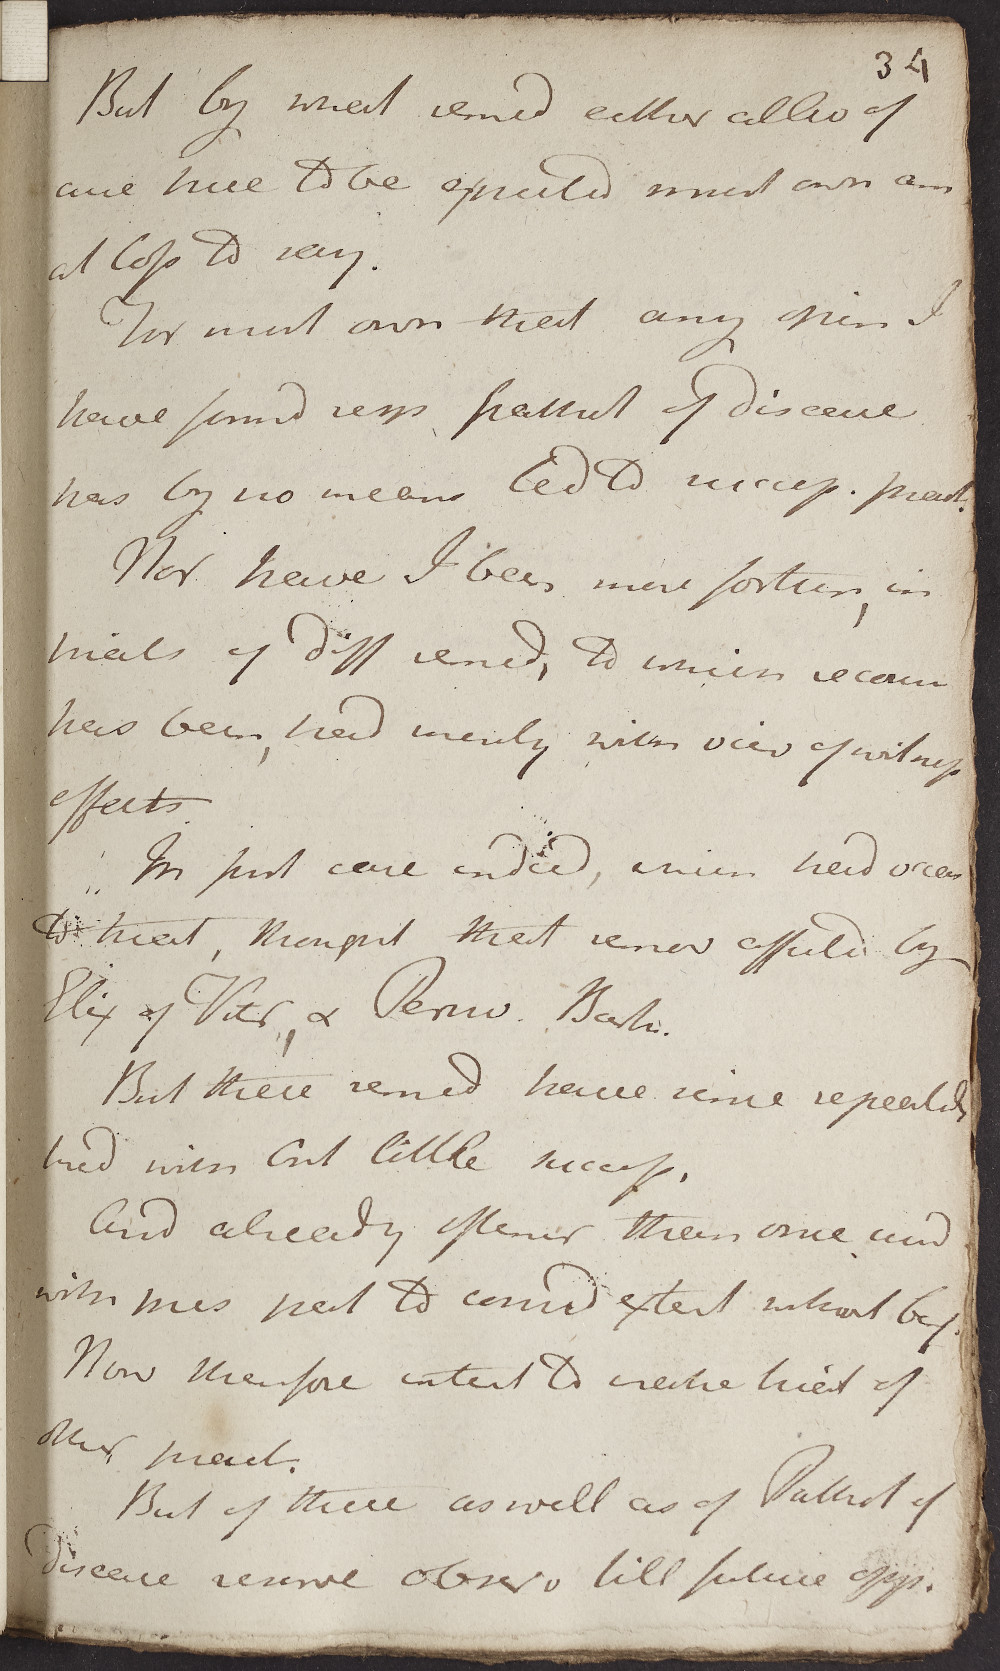 34
But by what remed either allev of
case here to be expected must own am
at loss to say.
For must own that any opin I
have formd resp pathol of disease
has by no means led to success. pract.
Nor have I been more fortun, in
trials of diff remed, to which recour
has been, had merely with view of witness
effects.
In first case indeed, which had occas
to treat, thought that remov effected by
Elix of Vitr, & Peruv. Bark.
But these remed have since repeatedly
tried with but little success.
And already oftener than once and
with this pat to consid extent without bef.
Now therefore intend to make trial of
other, pract.
But of these as well as of Pathol of
disease reserve observ till future opp.